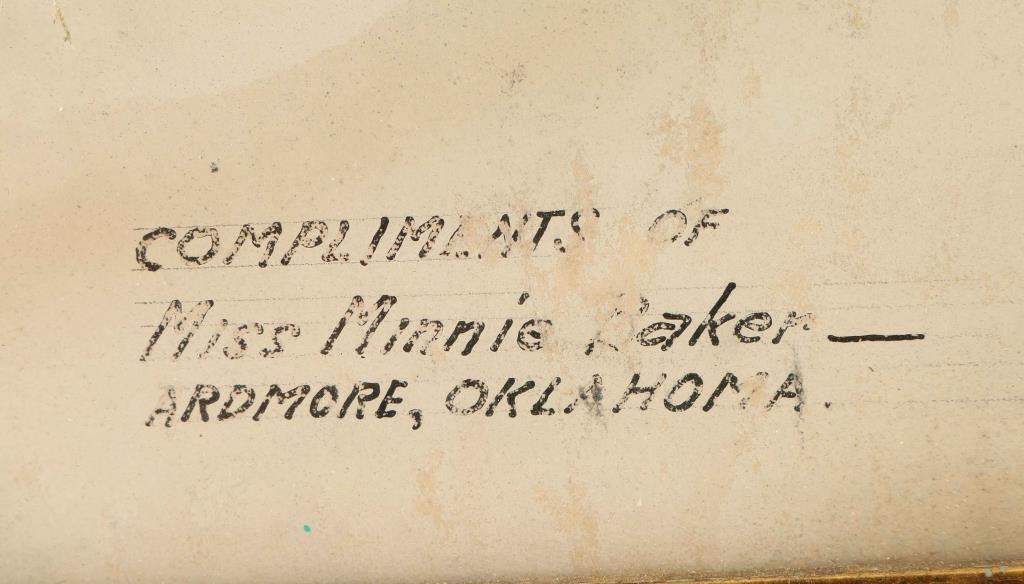 COMPLIMENTS OF
Miss Minnie Baker —
ARDMORE, OKLAHOMA.